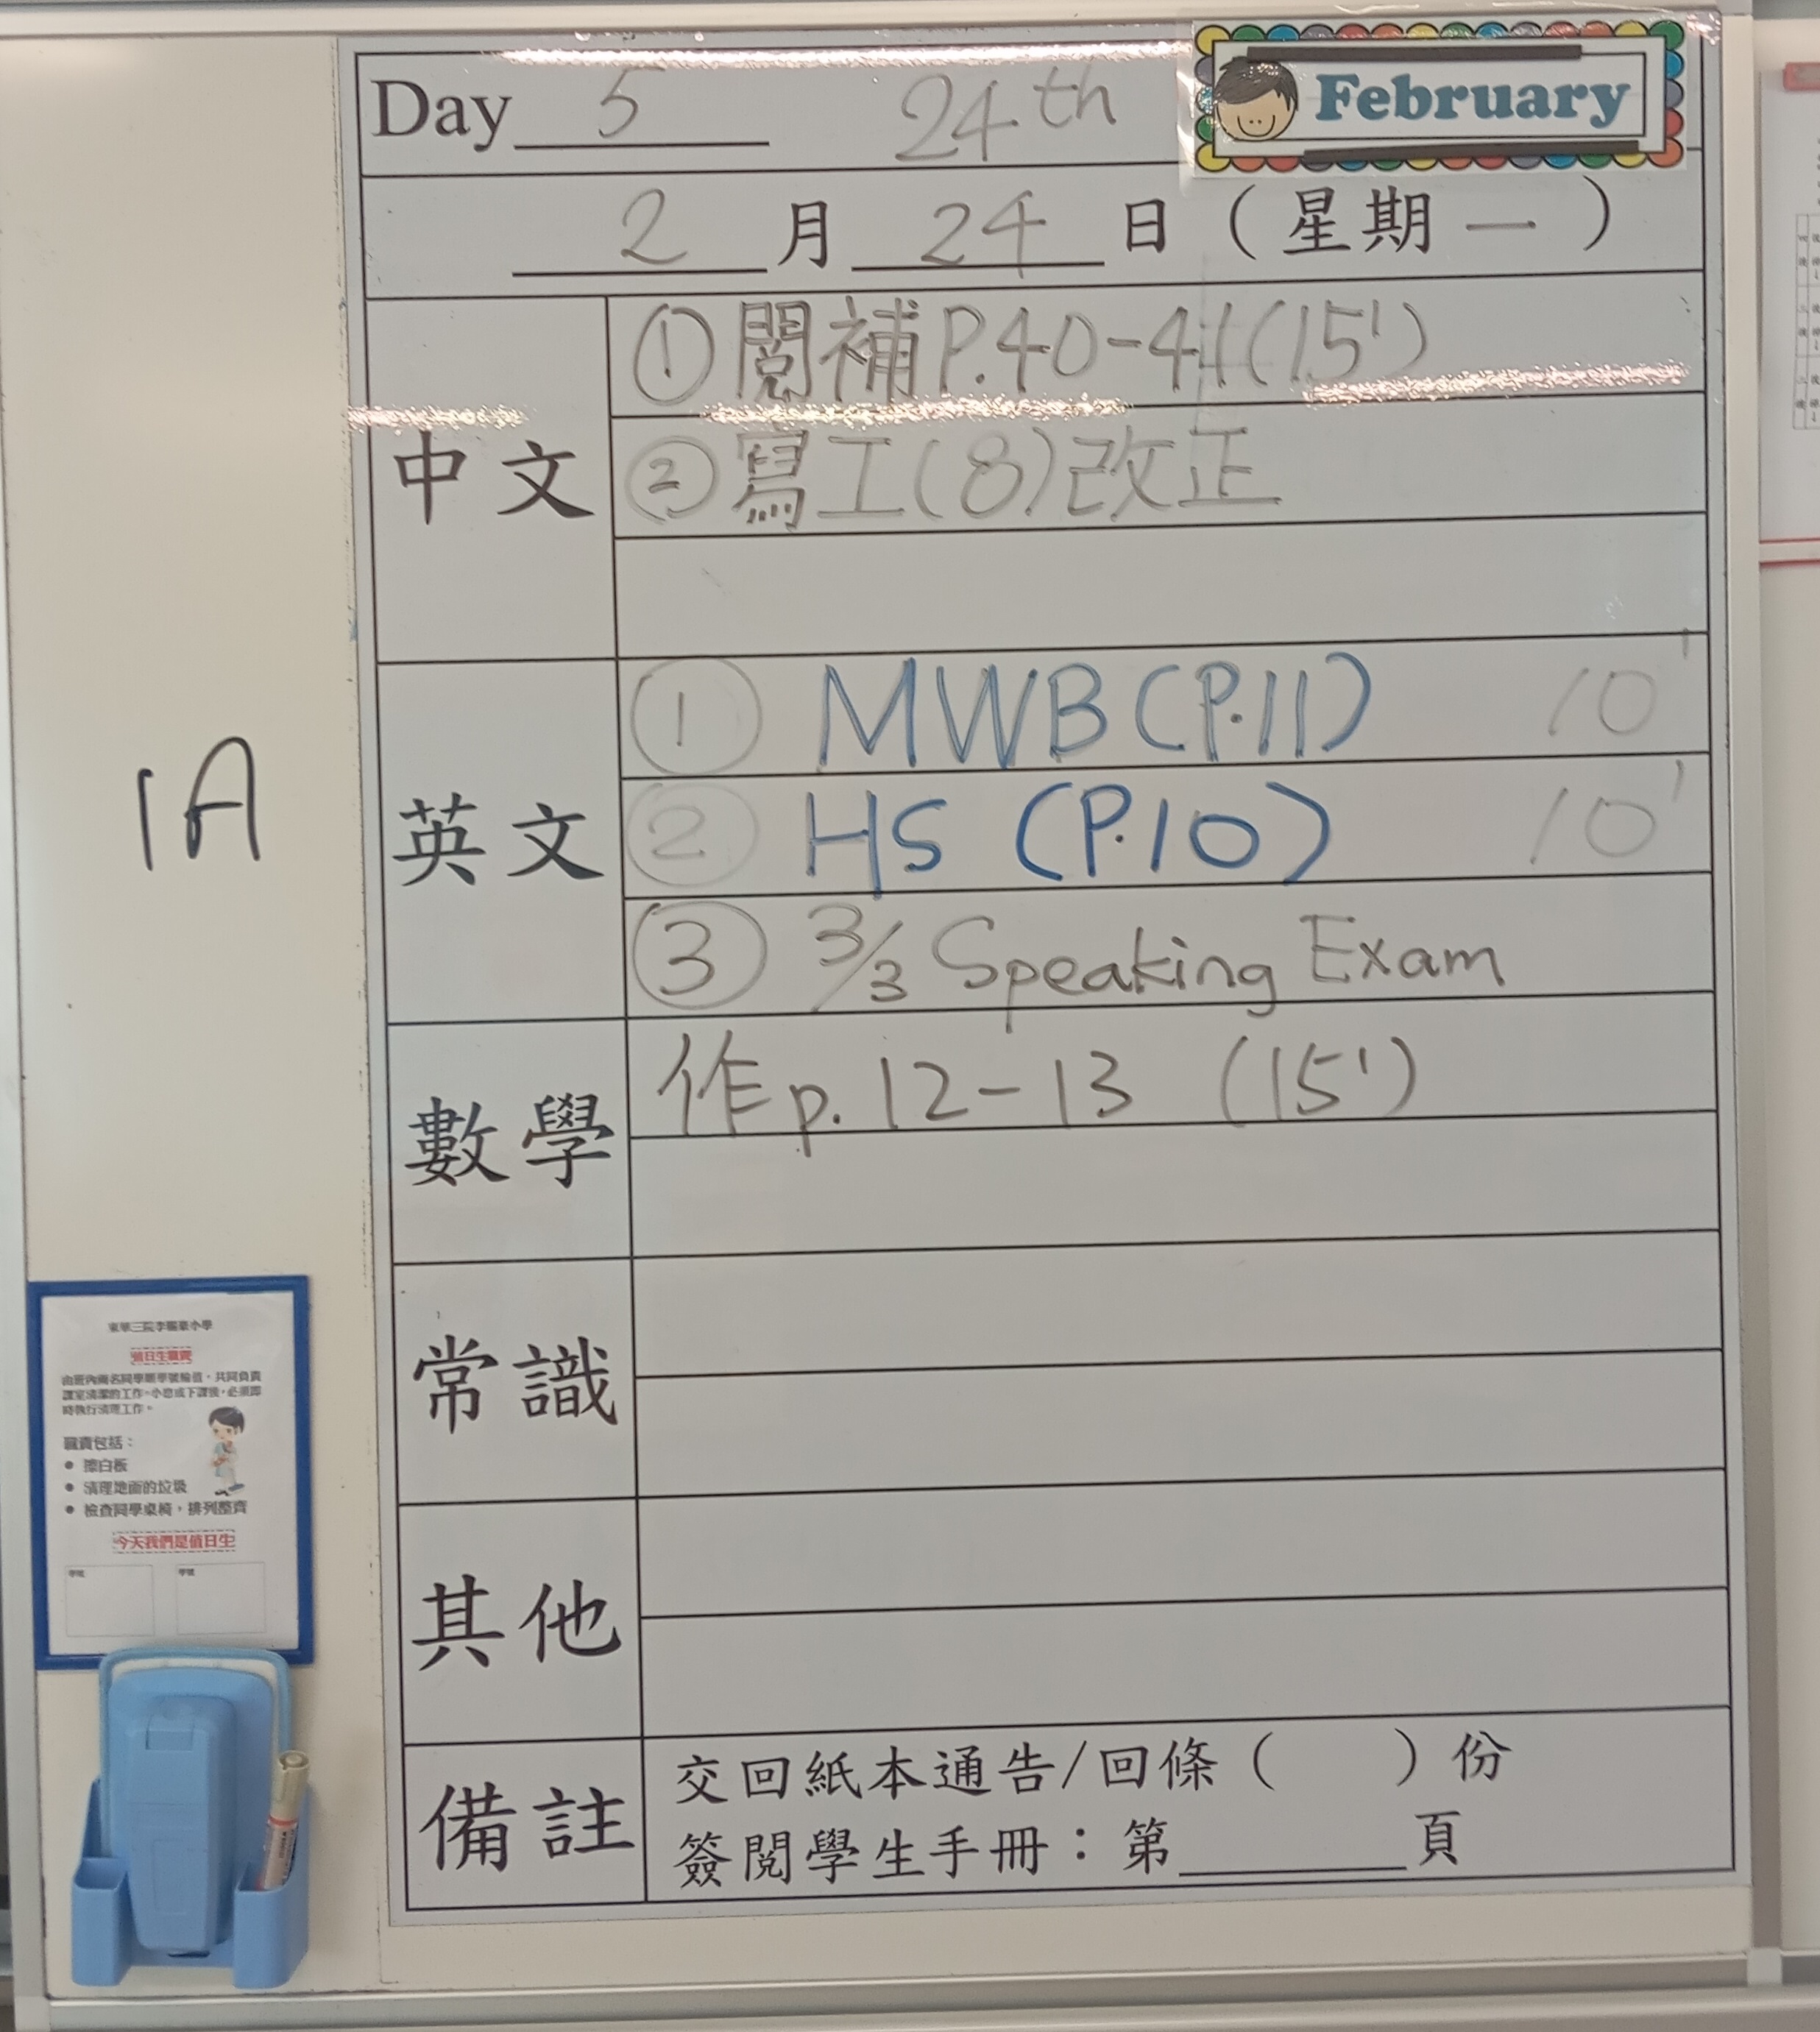 Day 5 24th February
2 月 24 日 (星期一)
中文
① 閱補 P.40-41 (15')
② 寫工(8)改正
英文
① MWB (P.11) 10'
② HS (P.10) 10'
③ 3/3 Speaking Exam
數學
作 p.12-13 (15')
常識
其他
備註
交回紙本通告/回條( )份
簽閱學生手冊:第______頁
1A
值日生職責
由班內兩名同學順學號輪值,共同負責
課室清潔的工作。小息或下課後,必須即
時執行清理工作。
職責包括:
● 擦白板
● 清理地面的垃圾
● 檢查同學桌椅,排列整齊
今天我們是值日生
學號 學號